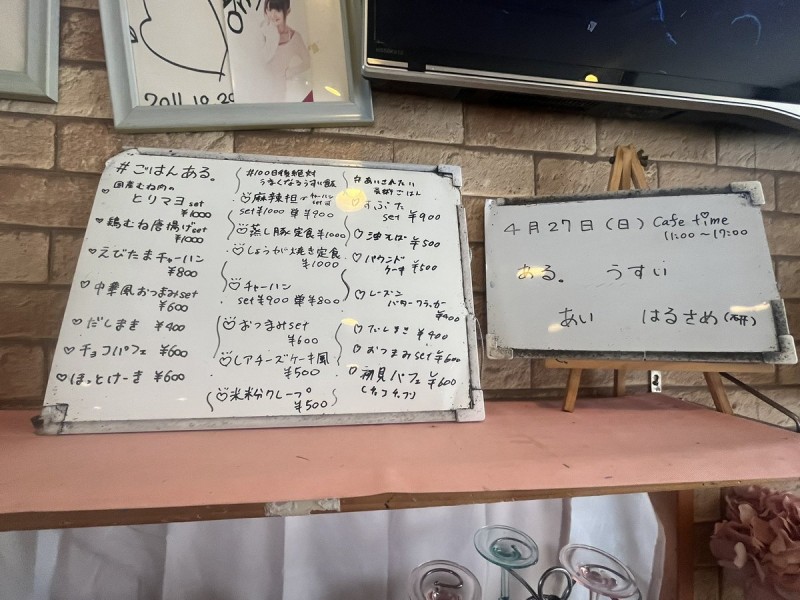 2011.10.20
#ごはんある。
国産むね肉の
♡ トリマヨ set
¥1000
♡ 鶏むね唐揚げset
¥1000
♡ えびたまチャーハン
¥800
♡ 中華風おつまみset
¥600
♡ だしまき ¥400
♡ チョコパフェ ¥600
♡ ほっとけーき ¥600
#100日後絶対
うまくなるうすい飯
set ¥1000 単 ¥900
♡蒸し豚定食 ¥1000
♡しょうが焼き定食
¥1000
♡チャーハン
set ¥900 単 ¥800
♡おつまみset
¥600
♡レアチーズケーキ風
¥500
♡米粉クレープ
¥500
#あいされたい
ごはん
すぶた
set ¥900
♡ 油そば ¥500
♡ パウンド
ケーキ ¥500
♡ レーズン
バタークラッカー
¥400
♡ だしまき ¥400
♡ おつまみset ¥600
♡ 初見パフェ ¥600
4月27日(日) Cafe time
11:00〜17:00
ある。 うすい
あい はるさめ(研)